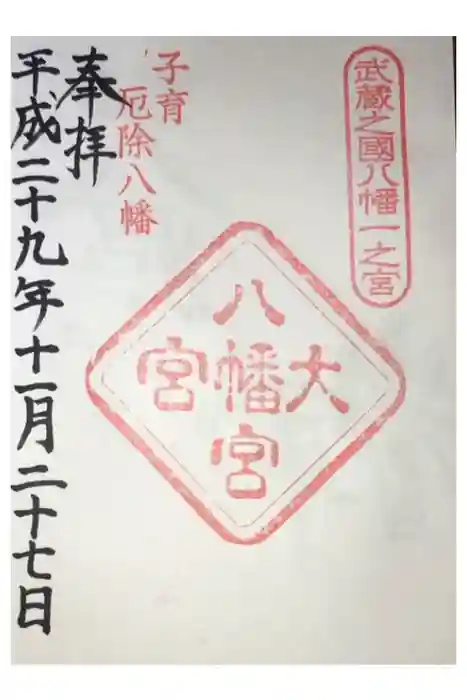 武蔵之國八幡一之宮
子育
厄除八幡
大宮
八幡宮
奉拝
平成二十九年十一月二十七日